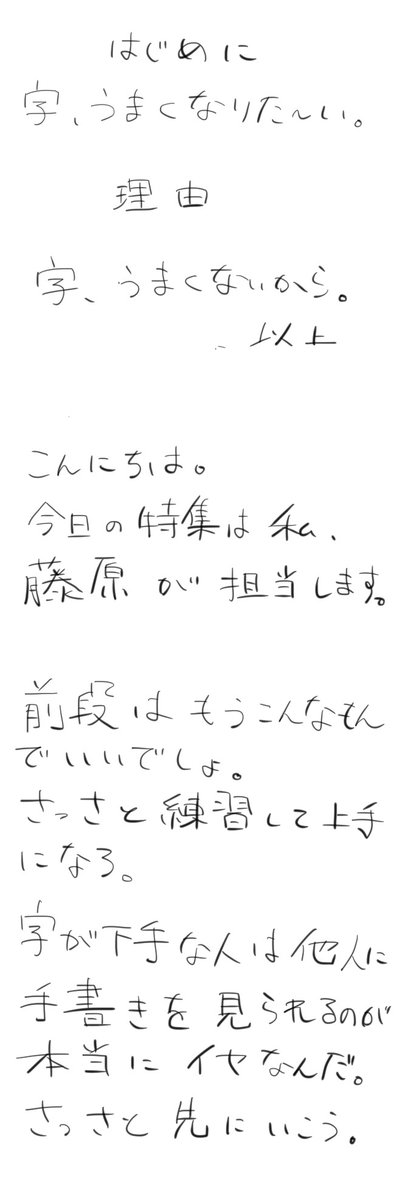 はじめに
字、うまくなりた〜い。
理由
字、うまくないから。
以上
こんにちは。
今日の特集は私、
藤原が担当します。
前段はもうこんなもん
でいいでしょ。
さっさと練習して上手
になろ。
字が下手な人は他人に
手書きを見られるのが
本当にイヤなんだ。
さっさと先にいこう。